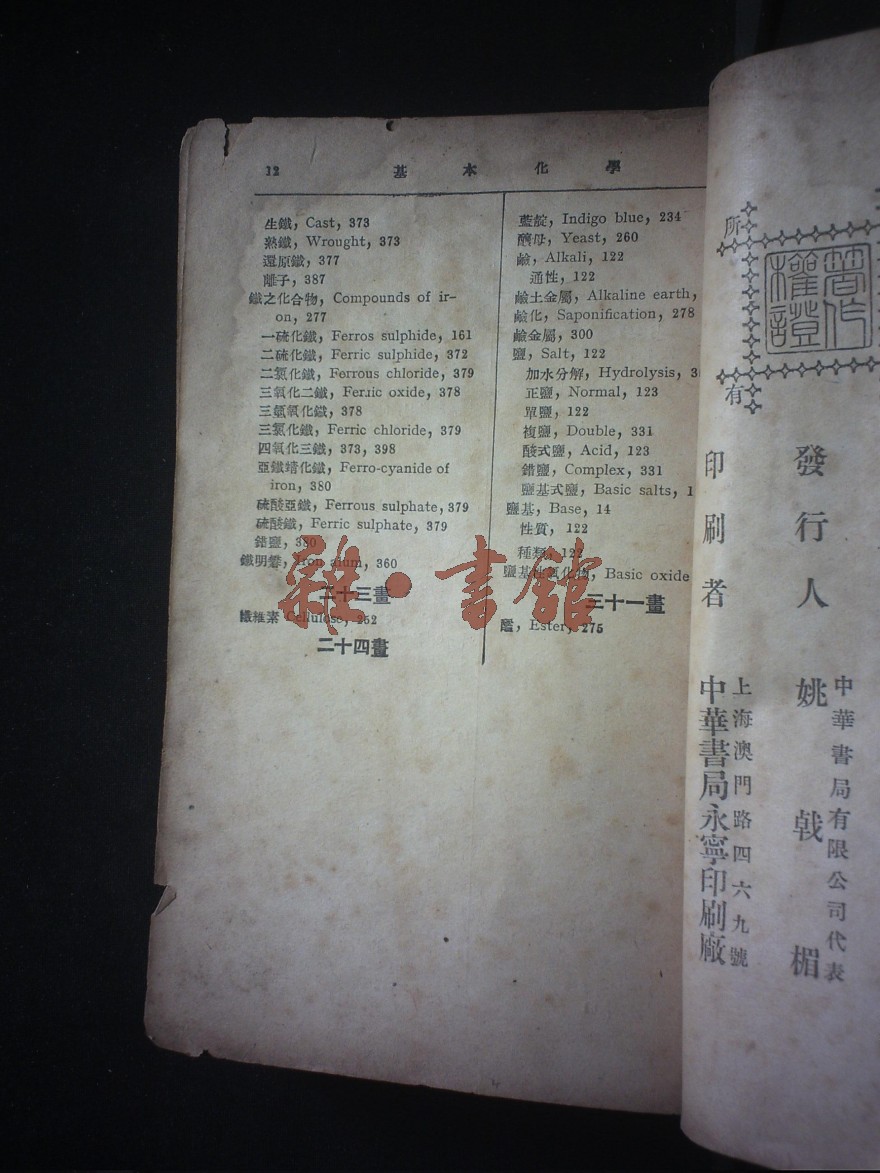 12
基本化學
生鐵, Cast, 373
熟鐵, Wrought, 373
還原鐵, 377
離子, 387
鐵之化合物, Compounds of ir-
on, 277
一硫化鐵, Ferros sulphide, 161
二硫化鐵, Ferric sulphide, 372
二氯化鐵, Ferrous chloride, 379
三氧化二鐵, Ferric oxide, 378
三氫氧化鐵, 378
三氯化鐵, Ferric chloride, 379
四氧化三鐵, 373, 398
亞鐵靖化鐵, Ferro-cyanide of
iron, 380
硫酸亞鐵, Ferrous sulphate, 379
硫酸鐵, Ferric sulphate, 379
錯鹽, 380
鐵明礬, Iron alum, 360
二十三畫
纖維素 Cellulose, 252
二十四畫
藍靛, Indigo blue, 234
釀母, Yeast, 260
鹼, Alkali, 122
通性, 122
鹼土金屬, Alkaline earth,
鹼化, Saponification, 278
鹼金屬, 300
鹽, Salt, 122
加水分解, Hydrolysis, 3
正鹽, Normal, 123
單鹽, 122
複鹽, Double, 331
酸式鹽, Acid, 123
錯鹽, Complex, 331
鹽基式鹽, Basic salts, 1
鹽基, Base, 14
性質, 122
種類, 122
鹽基性氧化物, Basic oxide
三十一畫
Ester, 275
雜·書館
所
有
著作權證
發行人
中華書局有限公司代表
姚戟楣
印刷者
上海澳門路四六九號
中華書局永寧印刷廠